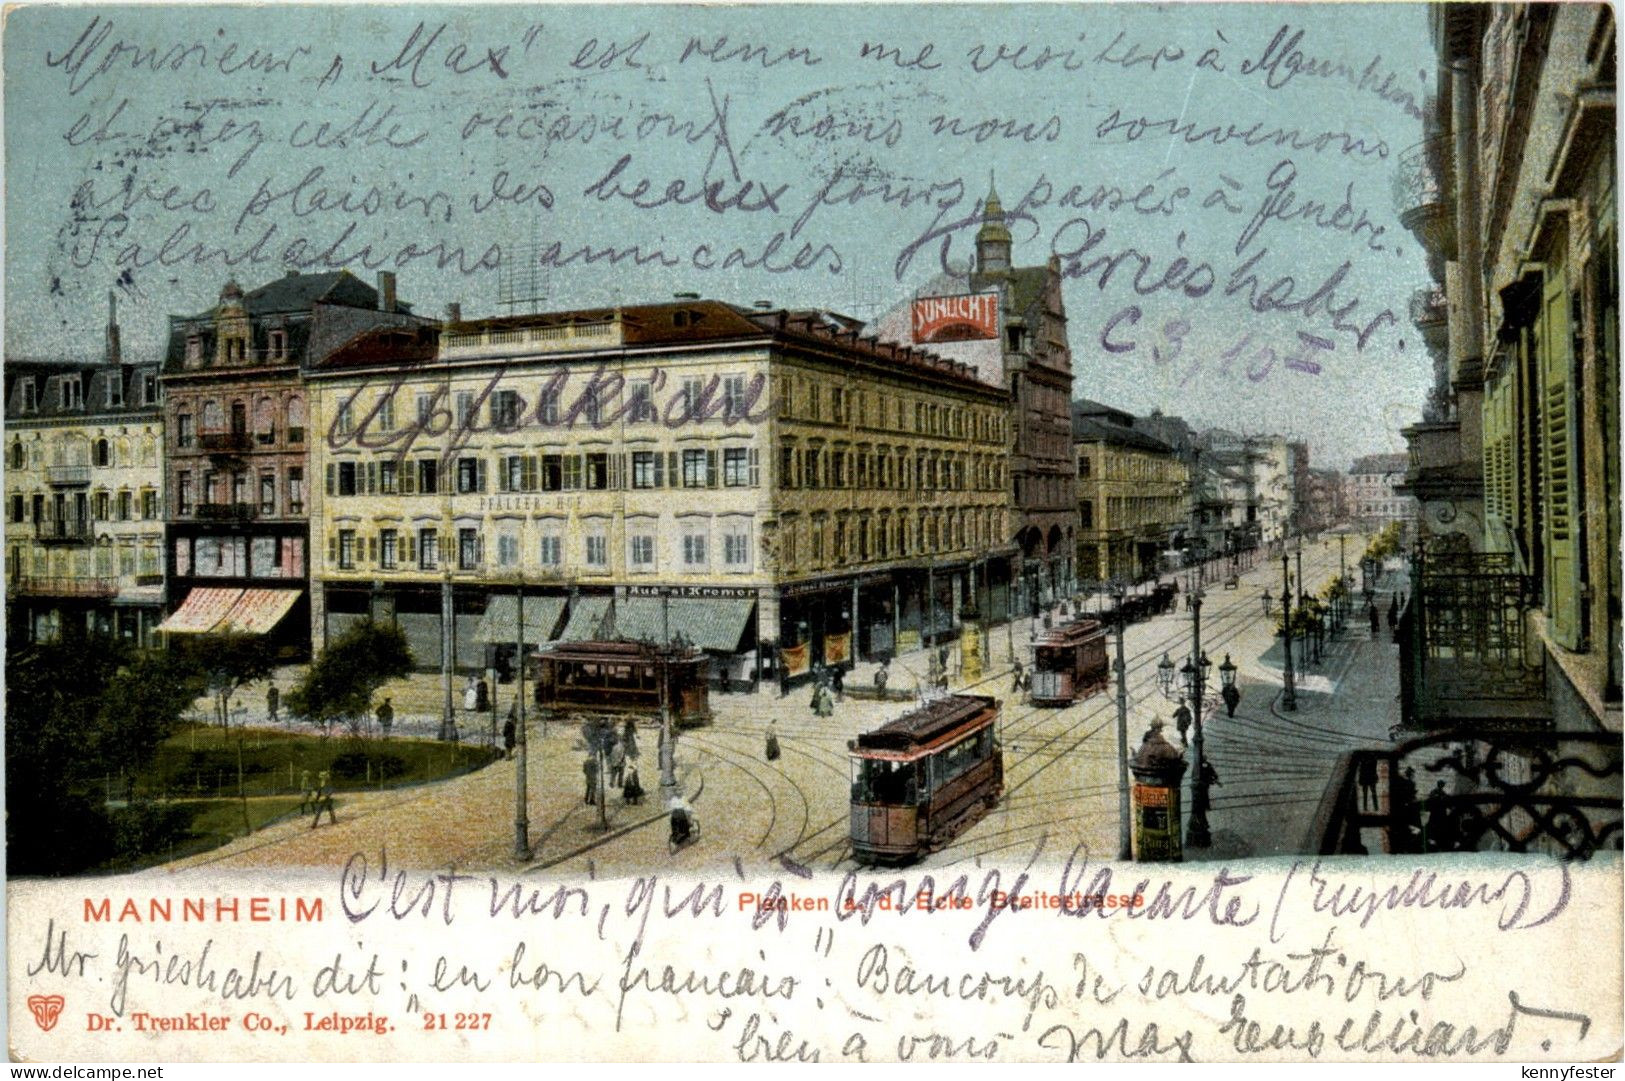 Monsieur „Max" est venu me vesiter à Mannheim
et chez cette occasion, nous nous souvenons
avec plaisir, des beaux jours, passés à Genève.
Salutations amicales K. Grieshaber.
C 3, 10 II
SUNLICHT
Apfelküchle
PFÄLZER-HOF
August Kremer
C'est moi, qui a corrigé la carte
MANNHEIM
Planken a. d. Ecke Breitestrasse
Mr. Grieshaber dit: „en bon français": Baucoup de salutations
Dr. Trenkler Co., Leipzig. 21 227
bien à vous Max
kennyfester